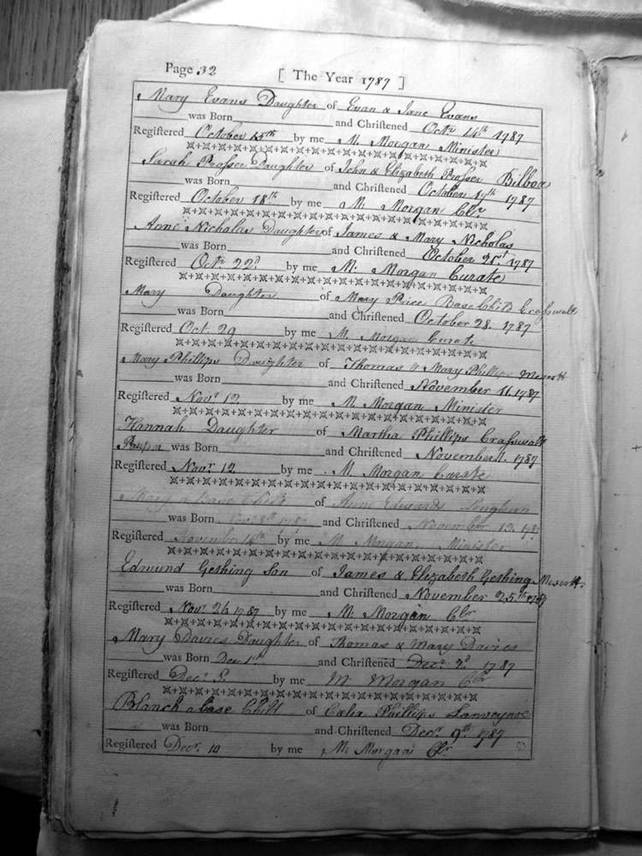 Page 32 [ The Year 1787 ]
Mary Evans Daughter of Evan & Jane Evans
was Born and Christened Octr 14th 1787
Registered October 15th by me M. Morgan Minister
Sarah Prosser Daughter of John & Elizabeth Prosser Bilboa
was Born and Christened October 17th 1787
Registered October 18th by me M. Morgan Clr
Anne Nicholas Daughter of James & Mary Nicholas
was Born and Christened October 21st 1787
Registered Octr 22d by me M. Morgan Curate
Mary Daughter of Mary Price Base Child Craswall
was Born and Christened October 28. 1787
Registered Oct. 29 by me M. Morgan Curate
Mary Phillips Daughter of Thomas & Mary Phillips
was Born and Christened November 11 1787
Registered Novr 12 by me M. Morgan Minister
Hannah Daughter of Martha Phillips Craswall
was Born and Christened November 11. 1787
Registered Novr 12 by me M. Morgan Curate
of Anne Edwards
was Born and Christened November 13. 178
Registered November 14th by me M. Morgan Minister
Edmund Gething Son of James & Elizabeth Gething
was Born and Christened November 25th 1787
Registered Novr 26 1787 by me M. Morgan Clr
Mary Davies Daughter of Thomas & Mary Davies
was Born Decr 1st and Christened Decr 2d 1787
Registered Decr 3 by me M Morgan Clr
Blanch a base Child of Celia Phillips
was Born and Christened Decr 9th 1787
Registered Decr 10 by me M. Morgan Clr